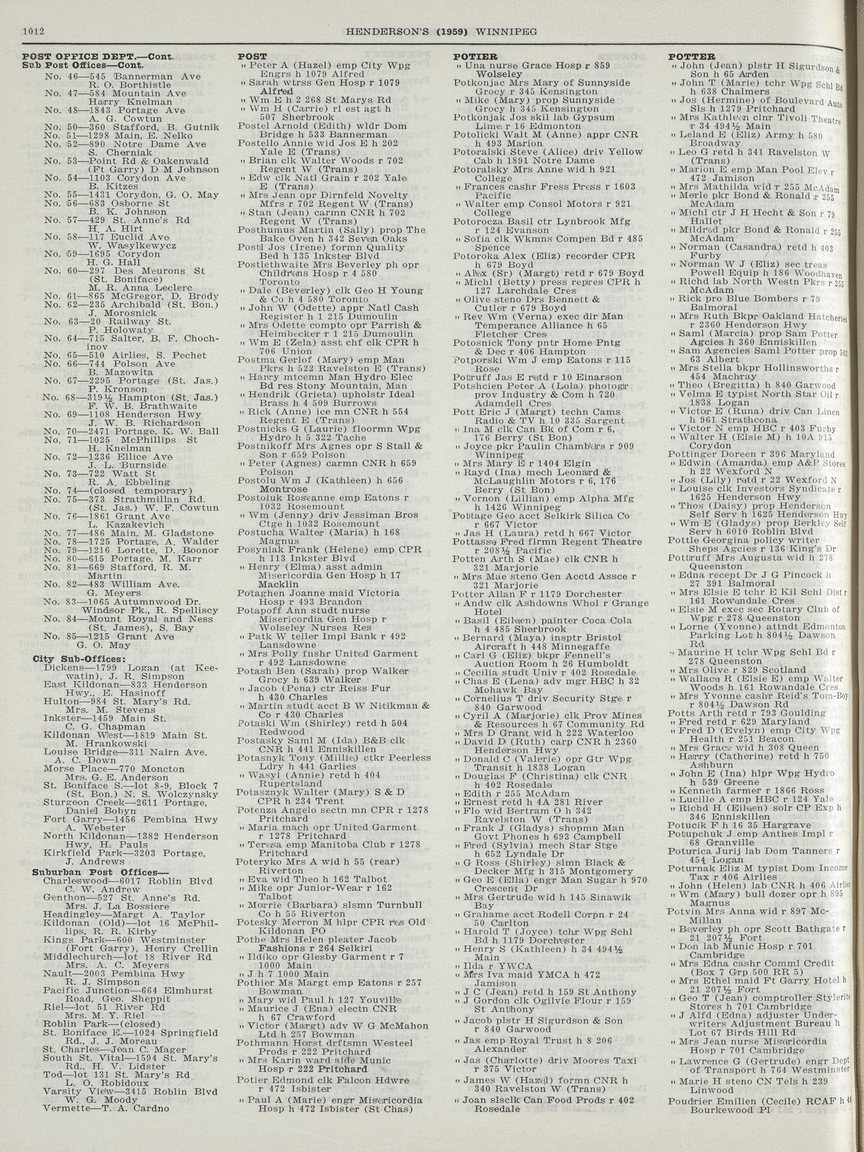 1012
HENDERSON'S (1959) WINNIPEG
POST OFFICE DEPT.—Cont.
Sub Post Offices—Cont.
No. 46—545 Bannerman Ave
R. O. Borthistle
No. 47—584 Mountain Ave
Harry Knelman
No. 48—1843 Portage Ave
A. G. Cowtun
No. 50—360 Stafford, B. Gutnik
No. 51—1298 Main, E. Nelko
No. 52—890 Notre Dame Ave
S. Cherniak
No. 53—Point Rd & Oakenwald
(Ft Garry) D M Johnson
No. 54—1103 Corydon Ave
B. Kitzes
No. 55—1431 Corydon, G. O. May
No. 56—683 Osborne St
B. K. Johnson
No. 57—429 St. Anne's Rd
H. A. Hirt
No. 58—117 Euclid Ave
W. Wasylkewycz
No. 59—1695 Corydon
H. G. Hall
No. 60—297 Des Meurons St
(St. Boniface)
M. R. Anna Leclerc
No. 61—865 McGregor, D. Brody
No. 62—235 Archibald (St. Bon.)
J. Morosnick
No. 63—20 Railway St.
P. Holowaty
No. 64—715 Salter, B. F. Choch-
inov
No. 65—510 Airlies, S. Pechet
No. 66—744 Polson Ave
B. Mazowita
No. 67—2295 Portage (St. Jas.)
P. Kronson
No. 68—319½ Hampton (St. Jas.)
F. W. B. Brathwaite
No. 69—1108 Henderson Hwy
J. W. B. Richardson
No. 70—2471 Portage, K. W. Ball
No. 71—1025 McPhillips St
H. Knelman
No. 72—1236 Ellice Ave
J. L. Burnside
No. 73—722 Watt St
R. A. Ebbeling
No. 74—(closed temporary)
No. 75—373 Strathmillan Rd.
(St. Jas.) W. F. Cowtun
No. 76—1861 Grant Ave
L. Kazakevich
No. 77—486 Main, M. Gladstone
No. 78—1725 Portage, A. Walder
No. 79—1216 Lorette, D. Boonor
No. 80—615 Portage, M. Karr
No. 81—669 Stafford, R. M.
Martin
No. 82—483 William Ave.
G. Meyers
No. 83—1065 Autumnwood Dr.
Windsor Pk., R. Spelliscy
No. 84—Mount Royal and Ness
(St. James), S. Bay
No. 85—1215 Grant Ave
G. O. May
City Sub-Offices:
Dickens—1799 Logan (at Kee-
watin), J. R. Simpson
East Kildonan—833 Henderson
Hwy., E. Hasinoff
Hulton—984 St. Mary's Rd.
Mrs. M. Stevens
Inkster—1459 Main St.
C. G. Chapman
Kildonan West—1819 Main St.
M. Hrankowski
Louise Bridge—311 Nairn Ave.
A. C. Down
Morse Place—770 Moncton
Mrs. G. E. Anderson
St. Boniface S.—lot 8-9, Block 7
(St. Bon.) N. S. Wolczynsky
Sturgeon Creek—2611 Portage,
Daniel Bobyn
Fort Garry—1456 Pembina Hwy
A. Webster
North Kildonan—1382 Henderson
Hwy, H. Pauls
Kirkfield Park—3203 Portage,
J. Andrews
Suburban Post Offices—
Charleswood—6017 Roblin Blvd
C. W. Andrew
Genthon—527 St. Anne's Rd.
Mrs. J. La Bossiere
Headingley—Margt A. Taylor
Kildonan (Old)—lot 16 McPhil-
lips, R. R. Kirby
Kings Park—600 Westminster
(Fort Garry), Henry Crellin
Middlechurch—lot 18 River Rd
Mrs. A. C. Meyers
Nault—2003 Pembina Hwy
R. J. Simpson
Pacific Junction—664 Elmhurst
Road, Geo. Sheppit
Riel—lot 51 River Rd
Mrs. M. Y. Riel
Roblin Park—(closed)
St. Boniface E.—1024 Springfield
Rd., J. J. Moreau
St. Charles—Jean C. Mager
South St. Vital—1594 St. Mary's
Rd., H. V. Lidster
Tod—lot 131 St. Mary's Rd
L. O. Robidoux
Varsity View—3415 Roblin Blvd
W. G. Moody
Vermette—T. A. Cardno
POST
" Peter A (Hazel) emp City Wpg
Engrs h 1079 Alfred
" Sarah wtrss Gen Hosp r 1079
Alfred
" Wm E h 2 268 St Marys Rd
" Wm H (Carrie) rl est agt h
507 Sherbrook
Postel Arnold (Edith) wldr Dom
Bridge h 533 Bannerman
Postello Annie wid Jos E h 202
Yale E (Trans)
" Brian clk Walter Woods r 702
Regent W (Trans)
" Edw clk Natl Grain r 202 Yale
E (Trans)
" Mrs Jean opr Dirnfeld Novelty
Mfrs r 702 Regent W (Trans)
" Stan (Jean) carmn CNR h 702
Regent W (Trans)
Posthumus Martin (Sally) prop The
Bake Oven h 342 Seven Oaks
Postil Jos (Irene) formn Quality
Bed h 135 Inkster Blvd
Postlethwaite Mrs Beverley ph opr
Childrens Hosp r 4 580
Toronto
" Dale (Beverley) clk Geo H Young
& Co h 4 580 Toronto
" John W (Odette) appr Natl Cash
Register h 1 215 Dumoulin
" Mrs Odette compto opr Parrish &
Heimbecker r 1 215 Dumoulin
" Wm E (Zela) asst chf clk CPR h
706 Union
Postma Gerlof (Mary) emp Man
Pkrs h 522 Ravelston E (Trans)
" Harry mtcemn Man Hydro Elec
Bd res Stony Mountain, Man
" Hendrik (Grieta) upholstr Ideal
Brass h 4 509 Burrows
" Rick (Anne) ice mn CNR h 554
Regent E (Trans)
Postnicks G (Laurie) floormn Wpg
Hydro h 5 322 Tache
Postnikoff Mrs Agnes opr S Stall &
Son r 659 Polson
" Peter (Agnes) carmn CNR h 659
Polson
Postolu Wm J (Kathleen) h 656
Montrose
Postoluk Roseanne emp Eatons r
1032 Rosemount
" Wm (Jenny) driv Jessiman Bros
Ctge h 1032 Rosemount
Postucha Walter (Maria) h 168
Magnus
Posyniak Frank (Helene) emp CPR
h 113 Inkster Blvd
" Henry (Elma) asst admin
Misericordia Gen Hosp h 17
Macklin
Potaghen Joanne maid Victoria
Hosp r 493 Brandon
Potapoff Ann studt nurse
Misericordia Gen Hosp r
Wolseley Nurses Res
" Patk W teller Impl Bank r 492
Lansdowne
" Mrs Polly fnshr United Garment
r 492 Lansdowne
Potash Ben (Sarah) prop Walker
Grocy h 639 Walker
" Jacob (Pena) ctr Reiss Fur
h 430 Charles
" Martin studt acct B W Nitikman &
Co r 430 Charles
Potaski Wm (Shirley) retd h 504
Redwood
Potasky Saml M (Ida) B&B clk
CNR h 441 Enniskillen
Potasnyk Tony (Millie) ctkr Peerless
Ldry h 441 Garlies
" Wasyl (Annie) retd h 404
Rupertsland
Potasznyk Walter (Mary) S & D
CPR h 234 Trent
Potenza Angelo sectn mn CPR r 1278
Pritchard
" Maria mach opr United Garment
r 1278 Pritchard
" Teresa emp Manitoba Club r 1278
Pritchard
Poteryko Mrs A wid h 55 (rear)
Riverton
" Eva wid Theo h 162 Talbot
" Mike opr Junior-Wear r 162
Talbot
" Morrie (Barbara) slsmn Turnbull
Co h 55 Riverton
Potesky Merron M hlpr CPR res Old
Kildonan PO
Pothe Mrs Helen pleater Jacob
Fashions r 264 Selkirk
" Ildiko opr Glesby Garment r 7
1000 Main
" J h 7 1000 Main
Pothier Mrs Margt emp Eatons r 257
Bowman
" Mary wid Paul h 127 Youville
" Maurice J (Ena) electn CNR
h 67 Crawford
" Victor (Margt) adv W G McMahon
Ltd h 257 Bowman
Pothmann Horst drftsmn Westeel
Prods r 222 Pritchard
" Mrs Karin ward aide Munic
Hosp r 222 Pritchard
Potier Edmond clk Falcon Hdwre
r 472 Isbister
" Paul A (Marie) engr Misericordia
Hosp h 472 Isbister (St Chas)
POTIER
" Una nurse Grace Hosp r 859
Wolseley
Potkonjac Mrs Mary of Sunnyside
Grocy r 345 Kensington
" Mike (Mary) prop Sunnyside
Grocy h 345 Kensington
Potkonjak Jos skil lab Gypsum
Lime r 16 Edmonton
Potolicki Walt M (Anne) appr CNR
h 493 Marion
Potoralski Steve (Alice) driv Yellow
Cab h 1891 Notre Dame
Potoralsky Mrs Anne wid h 921
College
" Frances cashr Fress Press r 1603
Pacific
" Walter emp Consol Motors r 921
College
Potorocza Basil ctr Lynbrook Mfg
r 124 Evanson
" Sofia clk Wkmns Compen Bd r 485
Spence
Potoroka Alex (Eliz) recorder CPR
h 679 Boyd
" Alex (Sr) (Margt) retd r 679 Boyd
" Michl (Betty) press repres CPR h
127 Larchdale Cres
" Olive steno Drs Bennett &
Cutler r 679 Boyd
" Rev Wm (Verna) exec dir Man
Temperance Alliance h 65
Fletcher Cres
Potosnick Tony pntr Home Pntg
& Dec r 406 Hampton
Potporski Wm J emp Eatons r 115
Rose
Potruff Jas E retd r 10 Einarson
Potshcien Peter A (Lola) photogr
prov Industry & Com h 720
Adamdell Cres
Pott Eric J (Margt) techn Cams
Radio & TV h 10 335 Sargent
" Ina M clk Can Bk of Com r 6,
176 Berry (St Bon)
" Joyce pkr Paulin Chambers r 909
Winnipeg
" Mrs Mary E r 1404 Elgin
" Rayd (Ina) mech Leonard &
McLaughlin Motors r 6, 176
Berry (St Bon)
" Vernon (Lillian) emp Alpha Mfg
h 1426 Winnipeg
Pottage Geo acct Selkirk Silica Co
r 667 Victor
" Jas H (Laura) retd h 667 Victor
Pottasse Fred flrmn Regent Theatre
r 208½ Pacific
Potten Arth S (Mae) clk CNR h
321 Marjorie
" Mrs Mae steno Gen Acctd Assce r
321 Marjorie
Potter Allan F r 1179 Dorchester
" Andw clk Ashdowns Whol r Grange
Hotel
" Basil (Eileen) painter Coca Cola
h 4 485 Sherbrook
" Bernard (Maya) insptr Bristol
Aircraft h 448 Minnegaffe
" Carl G (Eliz) bkpr Fennell's
Auction Room h 26 Humboldt
" Cecilia studt Univ r 402 Rosedale
" Chas E (Lena) adv mgr HBC h 32
Mohawk Bay
" Cornelius T driv Security Stge r
840 Garwood
" Cyril A (Marjorie) clk Prov Mines
& Resources h 67 Community Rd
" Mrs D Grant wid h 222 Waterloo
" David D (Ruth) carp CNR h 2360
Henderson Hwy
" Donald C (Valerie) opr Gtr Wpg
Transit h 1838 Logan
" Douglas F (Christina) clk CNR
h 402 Rosedale
" Edith r 255 McAdam
" Ernest retd h 4A 281 River
" Flo wid Bertram O h 342
Ravelston W (Trans)
" Frank J (Gladys) shopmn Man
Govt Phones h 693 Campbell
" Fred (Sylvia) mech Star Stge
h 652 Lyndale Dr
" G Ross (Shirley) slmn Black &
Decker Mfg h 315 Montgomery
" Geo E (Ella) engr Man Sugar h 970
Crescent Dr
" Mrs Gertrude wid h 145 Sinawik
Bay
" Grahame acct Rodell Corpn r 24
50 Carlton
" Harold T (Joyce) tchr Wpg Schl
Bd h 1179 Dorchester
" Henry S (Kathleen) h 34 494½
Main
" Ilda r YWCA
" Mrs Iva maid YMCA h 472
Jamison
" J C (Jean) retd h 159 St Anthony
" J Gordon clk Ogilvie Flour r 159
St Anthony
" Jacob plstr H Sigurdson & Son
r 840 Garwood
" Jas emp Royal Trust h 8 206
Alexander
" Jas (Charlotte) driv Moores Taxi
r 375 Victor
" James W (Hazel) formn CNR h
340 Ravelston W (Trans)
" Joan slsclk Can Food Prods r 402
Rosedale
POTTER
" John (Jean) plstr H Sigurdson &
Son h 65 Arden
" John T (Marie) tchr Wpg Schl Bd
h 638 Chalmers
" Jos (Hermine) of Boulevard Auto
Sls h 1279 Pritchard
" Mrs Kathleen clnr Tivoli Theatre
r 34 494½ Main
" Leland E (Eliz) Army h 580
Broadway
" Leo G retd h 341 Ravelston W
(Trans)
" Marion E emp Man Pool Elev r
472 Jamison
" Mrs Mathilda wid r 255 McAdam
" Merle pkr Bond & Ronald r 255
McAdam
" Michl ctr J H Hecht & Son r 79
Hallet
" Mildred pkr Bond & Ronald r 255
McAdam
" Norman (Casandra) retd h 403
Furby
" Norman W J (Eliz) sec treas
Powell Equip h 186 Woodhaven
" Richd lab North Westn Pkrs r 255
McAdam
" Rick pro Blue Bombers r 79
Balmoral
" Mrs Ruth Bkpr Oakland Hatcheries
r 2360 Henderson Hwy
" Saml (Marcia) prop Sam Potter
Agcies h 360 Enniskillen
" Sam Agencies Saml Potter prop
63 Albert
" Mrs Stella bkpr Hollinsworths r
454 Machray
" Theo (Bregitta) h 840 Garwood
" Velma E typist North Star Oil r
1838 Logan
" Victor E (Runa) driv Can Linen
h 961 Strathcona
" Victor N emp HBC r 403 Furby
" Walter H (Elsie M) h 10A 915
Corydon
Pottinger Doreen r 396 Maryland
" Edwin (Amanda) emp A&P Stores
h 22 Wexford N
" Jos (Lily) retd r 22 Wexford N
" Louise clk Investors Syndicate r
1625 Henderson Hwy
" Thos (Daisy) prop Henderson
Self Serv h 1625 Henderson Hwy
" Wm E (Gladys) prop Berkley Self
Serv h 6010 Roblin Blvd
Pottle Georgina policy writer
Sheps Agcies r 136 King's Dr
Pottruff Mrs Augusta wid h 278
Queenston
" Edna recept Dr J G Pincock h
27 391 Balmoral
" Mrs Elsie E tchr E Kil Schl Dist r
161 Rowandale Cres
" Elsie M exec sec Rotary Club of
Wpg r 278 Queenston
" Lorne (Yvonne) attndt Edmonton
Parking Lot h 804½ Dawson
Rd
" Maurine H tchr Wpg Schl Bd r
278 Queenston
" Mrs Olive r 829 Scotland
" Wallace R (Elsie E) emp Walter
Woods h 161 Rowandale Cres
" Mrs Yvonne cashr Reid's Tom-Boy
r 804½ Dawson Rd
Potts Arth retd r 793 Goulding
" Fred retd r 629 Maryland
" Fred D (Evelyn) emp City Wpg
Health r 251 Beacon
" Mrs Grace wid h 308 Queen
" Harry (Catherine) retd h 750
Ashburn
" John E (Ina) hlpr Wpg Hydro
h 539 Greene
" Kenneth farmer r 1866 Ross
" Lucille A emp HBC r 124 Yale
" Richd H (Eileen) solr CP Exp h
346 Enniskillen
Potucik F h 16 35 Hargrave
Potupchuk J emp Anthes Impl r
68 Granville
Poturica Jurij lab Dom Tanners r
454 Logan
Poturnak Eliz M typist Dom Income
Tax r 406 Airlies
" John (Helen) lab CNR h 406 Airlies
" Wm (Mary) bull dozer opr h 895
Magnus
Potvin Mrs Anna wid r 897 Mc-
Millan
" Beverley ph opr Scott Bathgate r
21 207½ Fort
" Don lab Munic Hosp r 701
Cambridge
" Mrs Edna cashr Comml Credit
(Box 7 Grp 500 RR 5)
" Mrs Ethel maid Ft Garry Hotel h
21 207½ Fort
" Geo T (Jean) comptroller Stylerite
Stores h 701 Cambridge
" J Alfd (Edna) adjuster Under-
writers Adjustment Bureau h
Lot 67 Birds Hill Rd
" Mrs Jean nurse Misericordia
Hosp r 701 Cambridge
" Lawrence G (Gertrude) engr Dept
of Transport h 764 Westminster
" Marie H steno CN Tels h 239
Linwood
Poudrier Emilien (Cecile) RCAF h
Bourkewood Pl